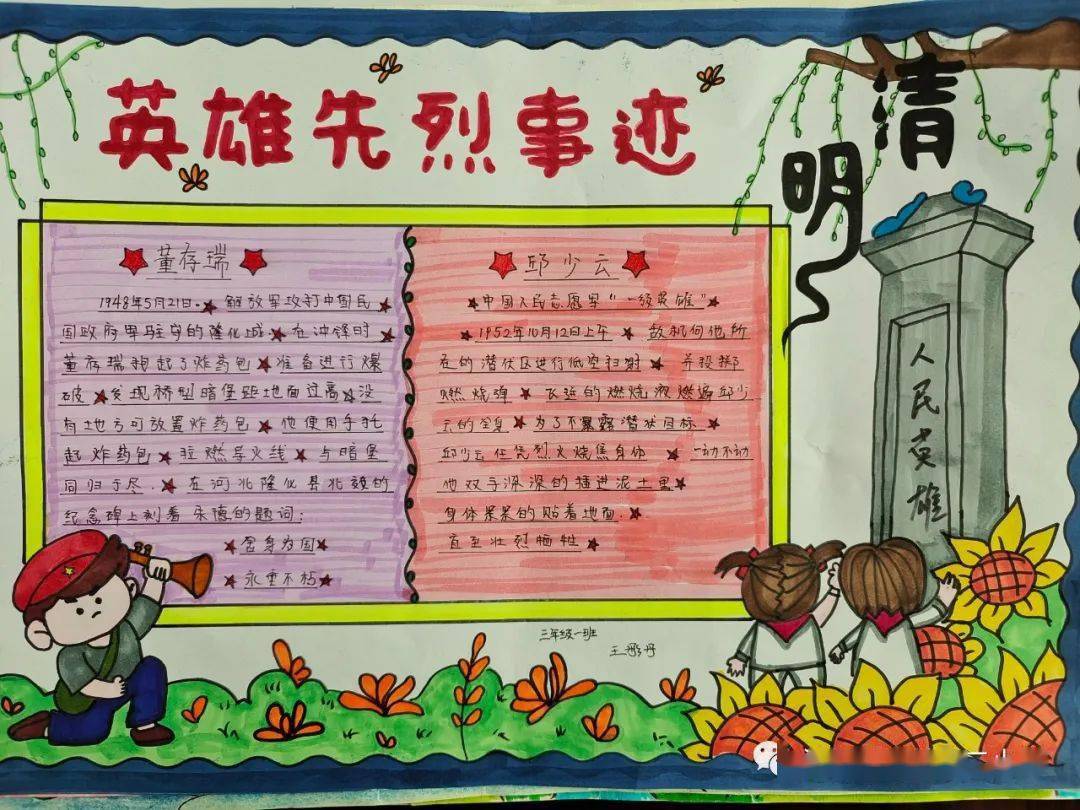 英雄先烈事迹
清明
董存瑞
1948年5月21日.★解放军攻打中国民
国政府军驻守的隆化城★在冲锋时
董存瑞抱起了炸药包★准备进行爆
破★发现桥型暗堡距地面过高★没
有地方可放置炸药包★他使用手托
起炸药包★拉燃导火线★与暗堡
同归于尽.★在河北隆化县北部的
纪念碑上刻着朱德的题词:
★舍身为国★
★永垂不朽★
邱少云
★中国人民志愿军“一级英雄”★
1952年10月12日上午★敌机向他所
在的潜伏区进行低空扫射★并投掷
燃烧弹★飞迸的燃烧液燃遍邱少
云的全身★为了不暴露潜伏目标★
邱少云任凭烈火烧焦身体★一动不动
他双手深深的插进泥土里★
身体紧紧的贴着地面.★
直至壮烈牺牲★
人民英雄
三年级一班